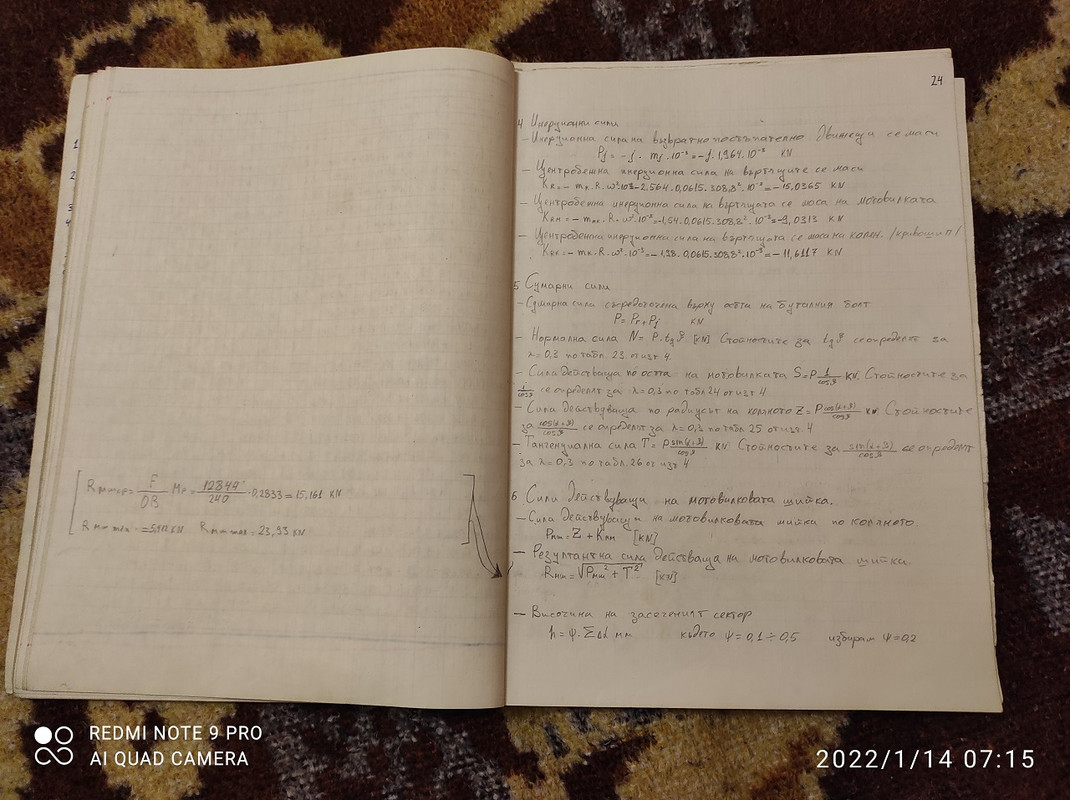 24
4 Инерционни сили
– Инерционна сила на възвратнопостъпателно движещи се маси
Pj = -j . mj . 10⁻³ = -j . 1,964 . 10⁻³ KN
– Центробежна инерционна сила на въртящите се маси
KR = - mR . R . ω² . 10⁻³ = -2,564 . 0,0615 . 308,8² . 10⁻³ = -15,0365 KN
– Центробежна инерционна сила на въртящата се маса на мотовилката
KRM = - mRM . R . ω² . 10⁻³ = -1,54 . 0,0615 . 308,8² . 10⁻³ = -9,0313 KN
– Центробежна инерционна сила на въртящата се маса на колян. /кривошип/
KRK = - mK . R . ω² . 10⁻³ = -1,98 . 0,0615 . 308,8² . 10⁻³ = -11,6117 KN
5 Сумарни сили
– Сумарна сила съсредоточена върху остта на буталния болт
P = Pr + Pj KN
– Нормална сила N = P . tg β [KN] Стойностите за tg β се определят за
λ = 0,3 по табл. 23 от изт 4.
– Сила действаща по остта на мотовилката S = P 1/cosβ KN. Стойностите за
1/cosβ се определят за λ = 0,3 по табл 24 от изт 4
– Сила действуваща по радиусът на коляното Z = P cos(α+β)/cosβ KN. Стойностите
за cos(α+β)/cosβ се определят за λ = 0,3 по табл 25 от изт. 4
– Тангенциална сила T = P sin(α+β)/cosβ KN Стойностите за sin(α+β)/cosβ се определят
за λ = 0,3 по табл. 26 от изт 4
6 Сили действуващи на мотовилковата шийка.
– Сила действуващи на мотовилковата шийка по коляното.
Pмш = Z + KRM [KN]
– Резултантна сила действаща на мотовилковата шийка.
Rмш = √Pмш² + T² [KN]
– Височина на засегнатият сектор
h = ψ . ΣΔi мм където ψ = 0,1 ÷ 0,5 избирам ψ = 0,2
Rмш ср = F/OB Mr = 12844/240 . 0,2833 = 15,161 KN
Rмш min = 5,912 KN Rмш max = 23,93 KN
REDMI NOTE 9 PRO
AI QUAD CAMERA
2022/1/14 07:15